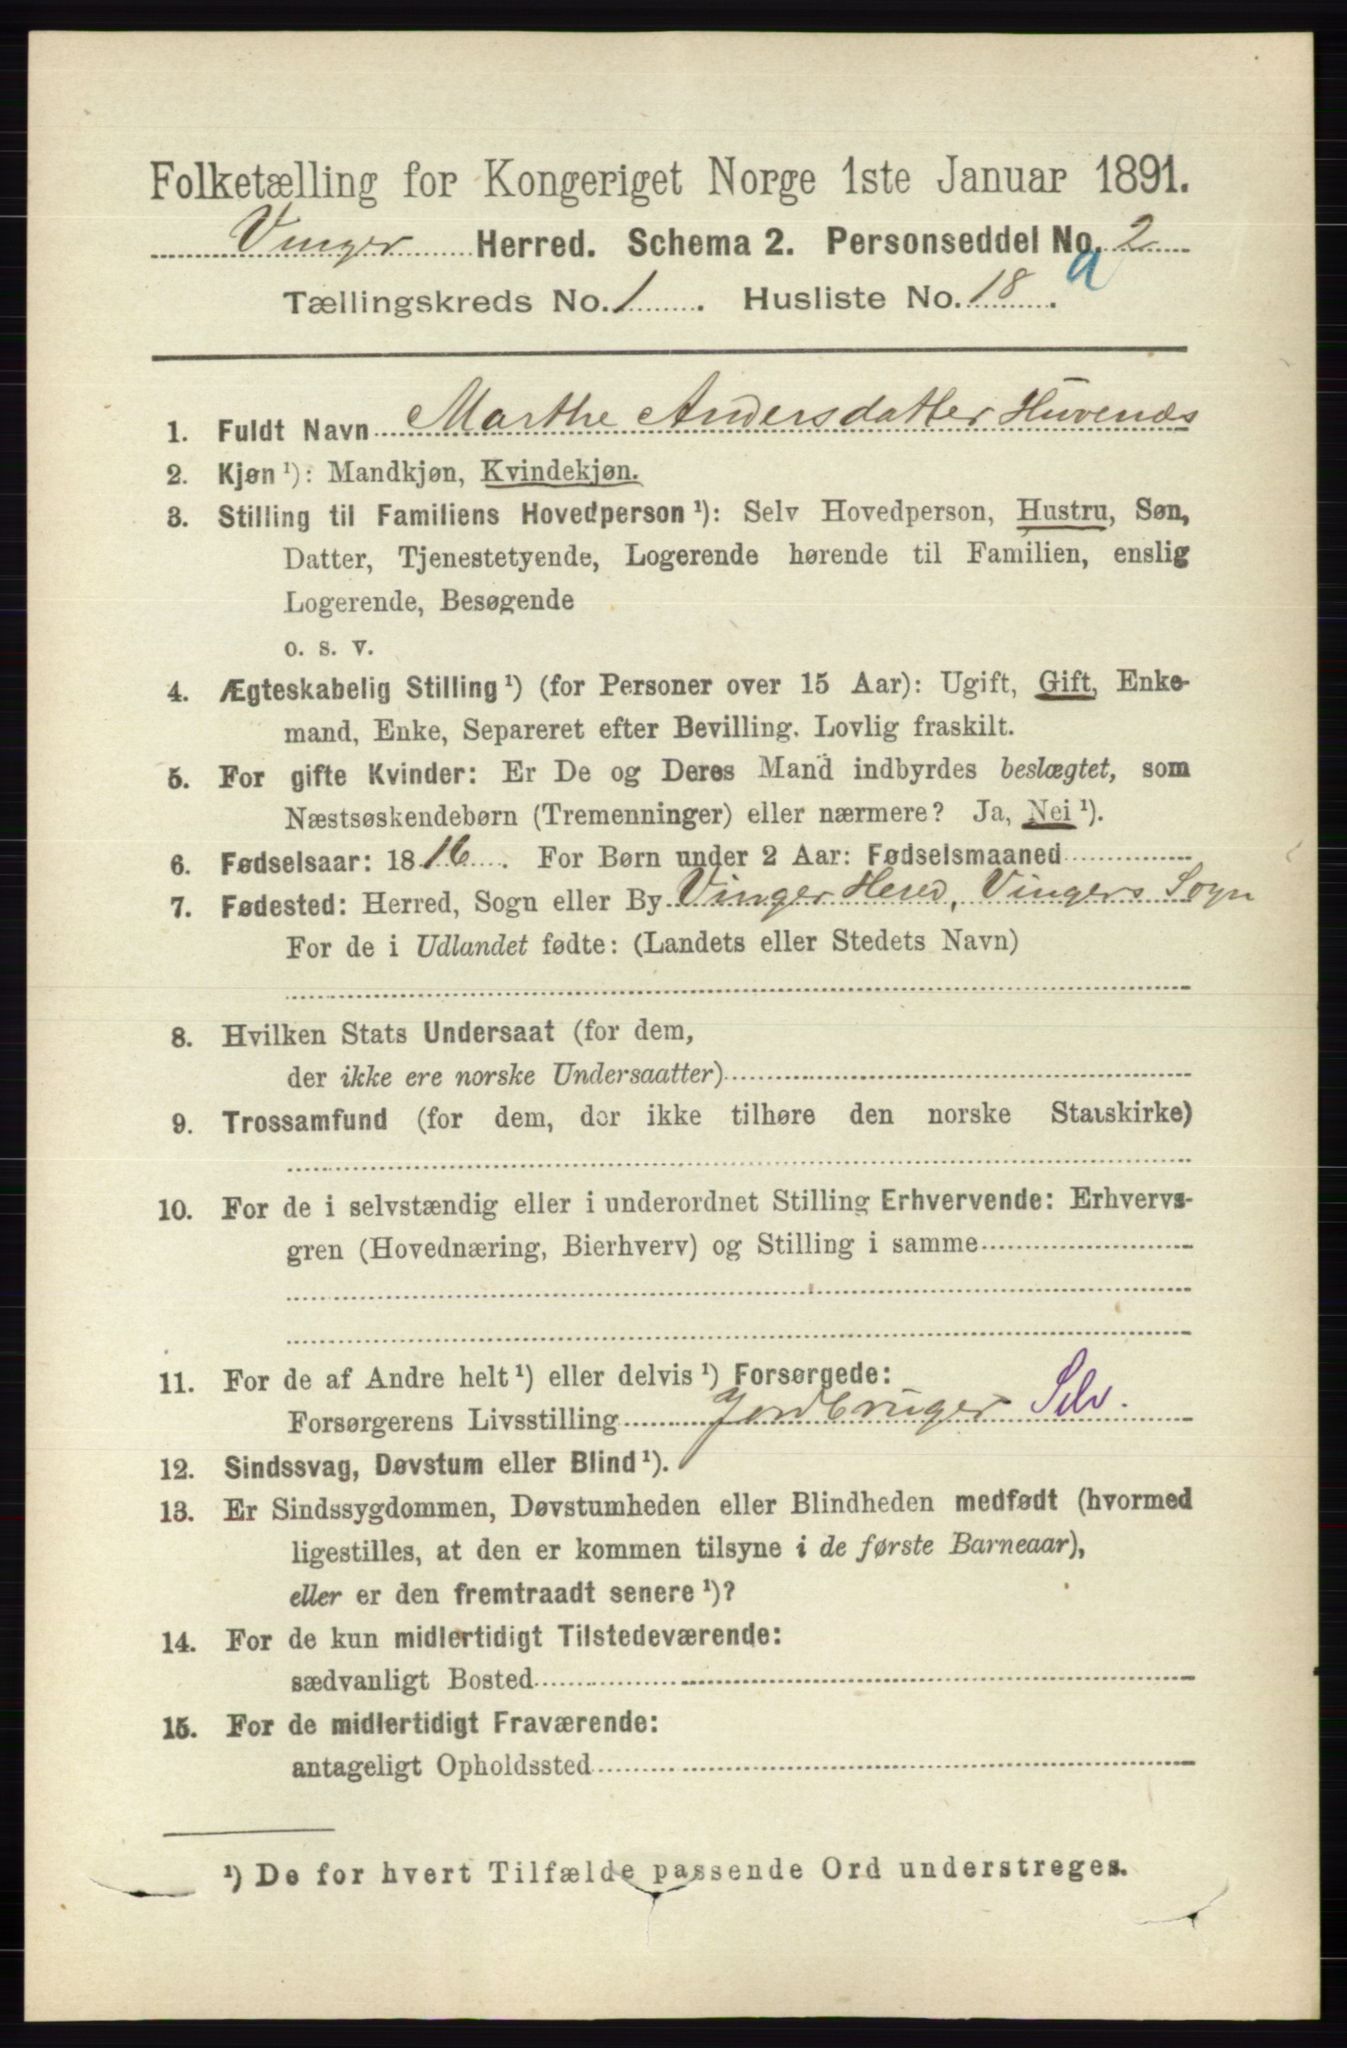 Folketælling for Kongeriget Norge 1ste Januar 1891.
Vinger Herred. Schema 2. Personseddel No. 2
Tællingskreds No. 1. Husliste No. 18 a.
1. Fuldt Navn Marthe Andersdatter Huvenæs
2. Kjøn ¹): Mandkjøn, Kvindekjøn.
3. Stilling til Familiens Hovedperson ¹): Selv Hovedperson, Hustru, Søn,
Datter, Tjenestetyende, Logerende hørende til Familien, enslig
Logerende, Besøgende
o. s. v.
4. Ægteskabelig Stilling ¹) (for Personer over 15 Aar): Ugift, Gift, Enke-
mand, Enke, Separeret efter Bevilling. Lovlig fraskilt.
5. For gifte Kvinder: Er De og Deres Mand indbyrdes beslægtet, som
Næstsøskendebørn (Tremenninger) eller nærmere? Ja, Nei ¹).
6. Fødselsaar: 1816. For Børn under 2 Aar: Fødselsmaaned
7. Fødested: Herred, Sogn eller By Vinger Hered, Vingers Sogn
For de i Udlandet fødte: (Landets eller Stedets Navn)
8. Hvilken Stats Undersaat (for dem,
der ikke ere norske Undersaatter)
9. Trossamfund (for dem, der ikke tilhøre den norske Statskirke)
10. For de i selvstændig eller i underordnet Stilling Erhvervende: Erhvervs-
gren (Hovednæring, Bierhverv) og Stilling i samme
11. For de af Andre helt ¹) eller delvis ¹) Forsørgede:
Forsørgerens Livsstilling Jordbruger Selv.
12. Sindssvag, Døvstum eller Blind ¹).
13. Er Sindssygdommen, Døvstumheden eller Blindheden medfødt (hvormed
ligestilles, at den er kommen tilsyne i de første Barneaar),
eller er den fremtraadt senere ¹)?
14. For de kun midlertidigt Tilstedeværende:
sædvanligt Bosted
15. For de midlertidigt Fraværende:
antageligt Opholdssted
¹) De for hvert Tilfælde passende Ord understreges.